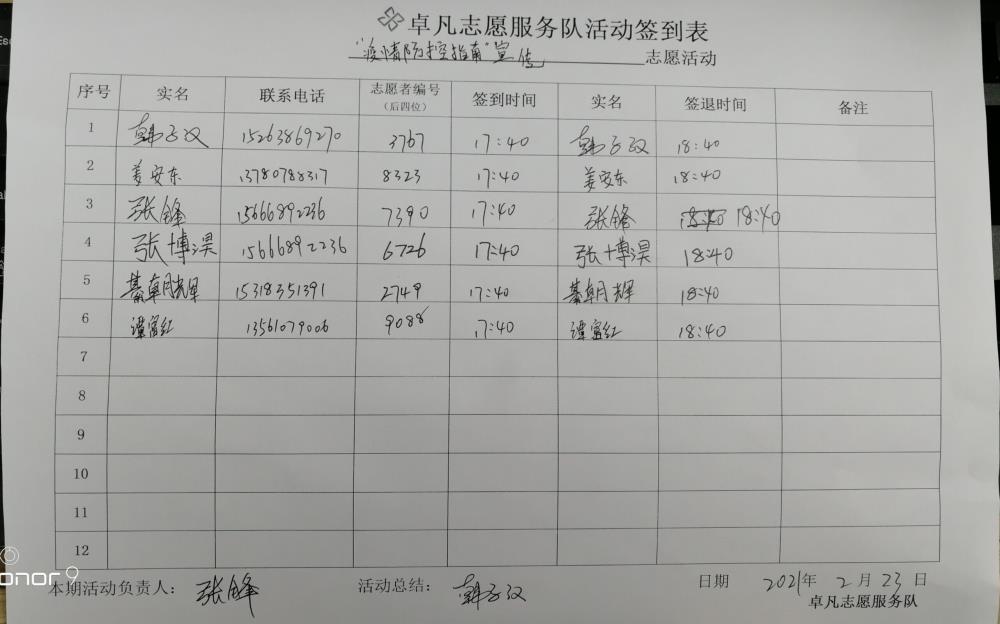 卓凡志愿服务队活动签到表
"疫情防控指南"宣传 志愿活动
序号 实名 联系电话 志愿者编号 (后四位) 签到时间 实名 签退时间 备注
1 韩子汉 15263869270 3767 17:40 韩子汉 18:40
2 姜安东 13780788317 8323 17:40 姜安东 18:40
3 张锋 15666892236 7390 17:40 张锋 18:40 18:40
4 张博淏 15666892236 6726 17:40 张博淏 18:40
5 綦朝辉 15318351391 2749 17:40 綦朝辉 18:40
6 谭富红 13561079006 9088 17:40 谭富红 18:40
7
8
9
10
11
12
本期活动负责人: 张锋 活动总结: 韩子汉 日期 2021年 2月 23日
卓凡志愿服务队
onor 9